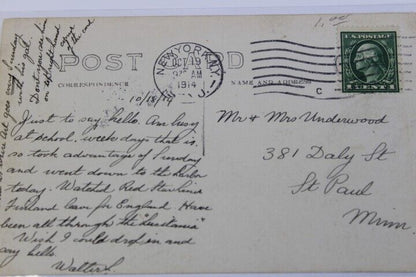 1.00
POST CARD
CORRESPONDENCE
NAME AND ADDRESS
NEW YORK, N.Y.
OCT 19
9 AM
1914
U.S. POSTAGE
1 CENT 1
10/18/14
Just to say hello. Am busy
at school, week days that is
so took advantage of Sunday
and went down to the harbor
today. Watched Red Star liner
Finland leave for England. Have
been all through the "Lusitania"
Wish I could drop in and
say hello.
Walter L.
Mr & Mrs Underwood
381 Daly St
St Paul
Minn.
you every Sunday
with his girl.
Don't you see him
on upright hand
of the card